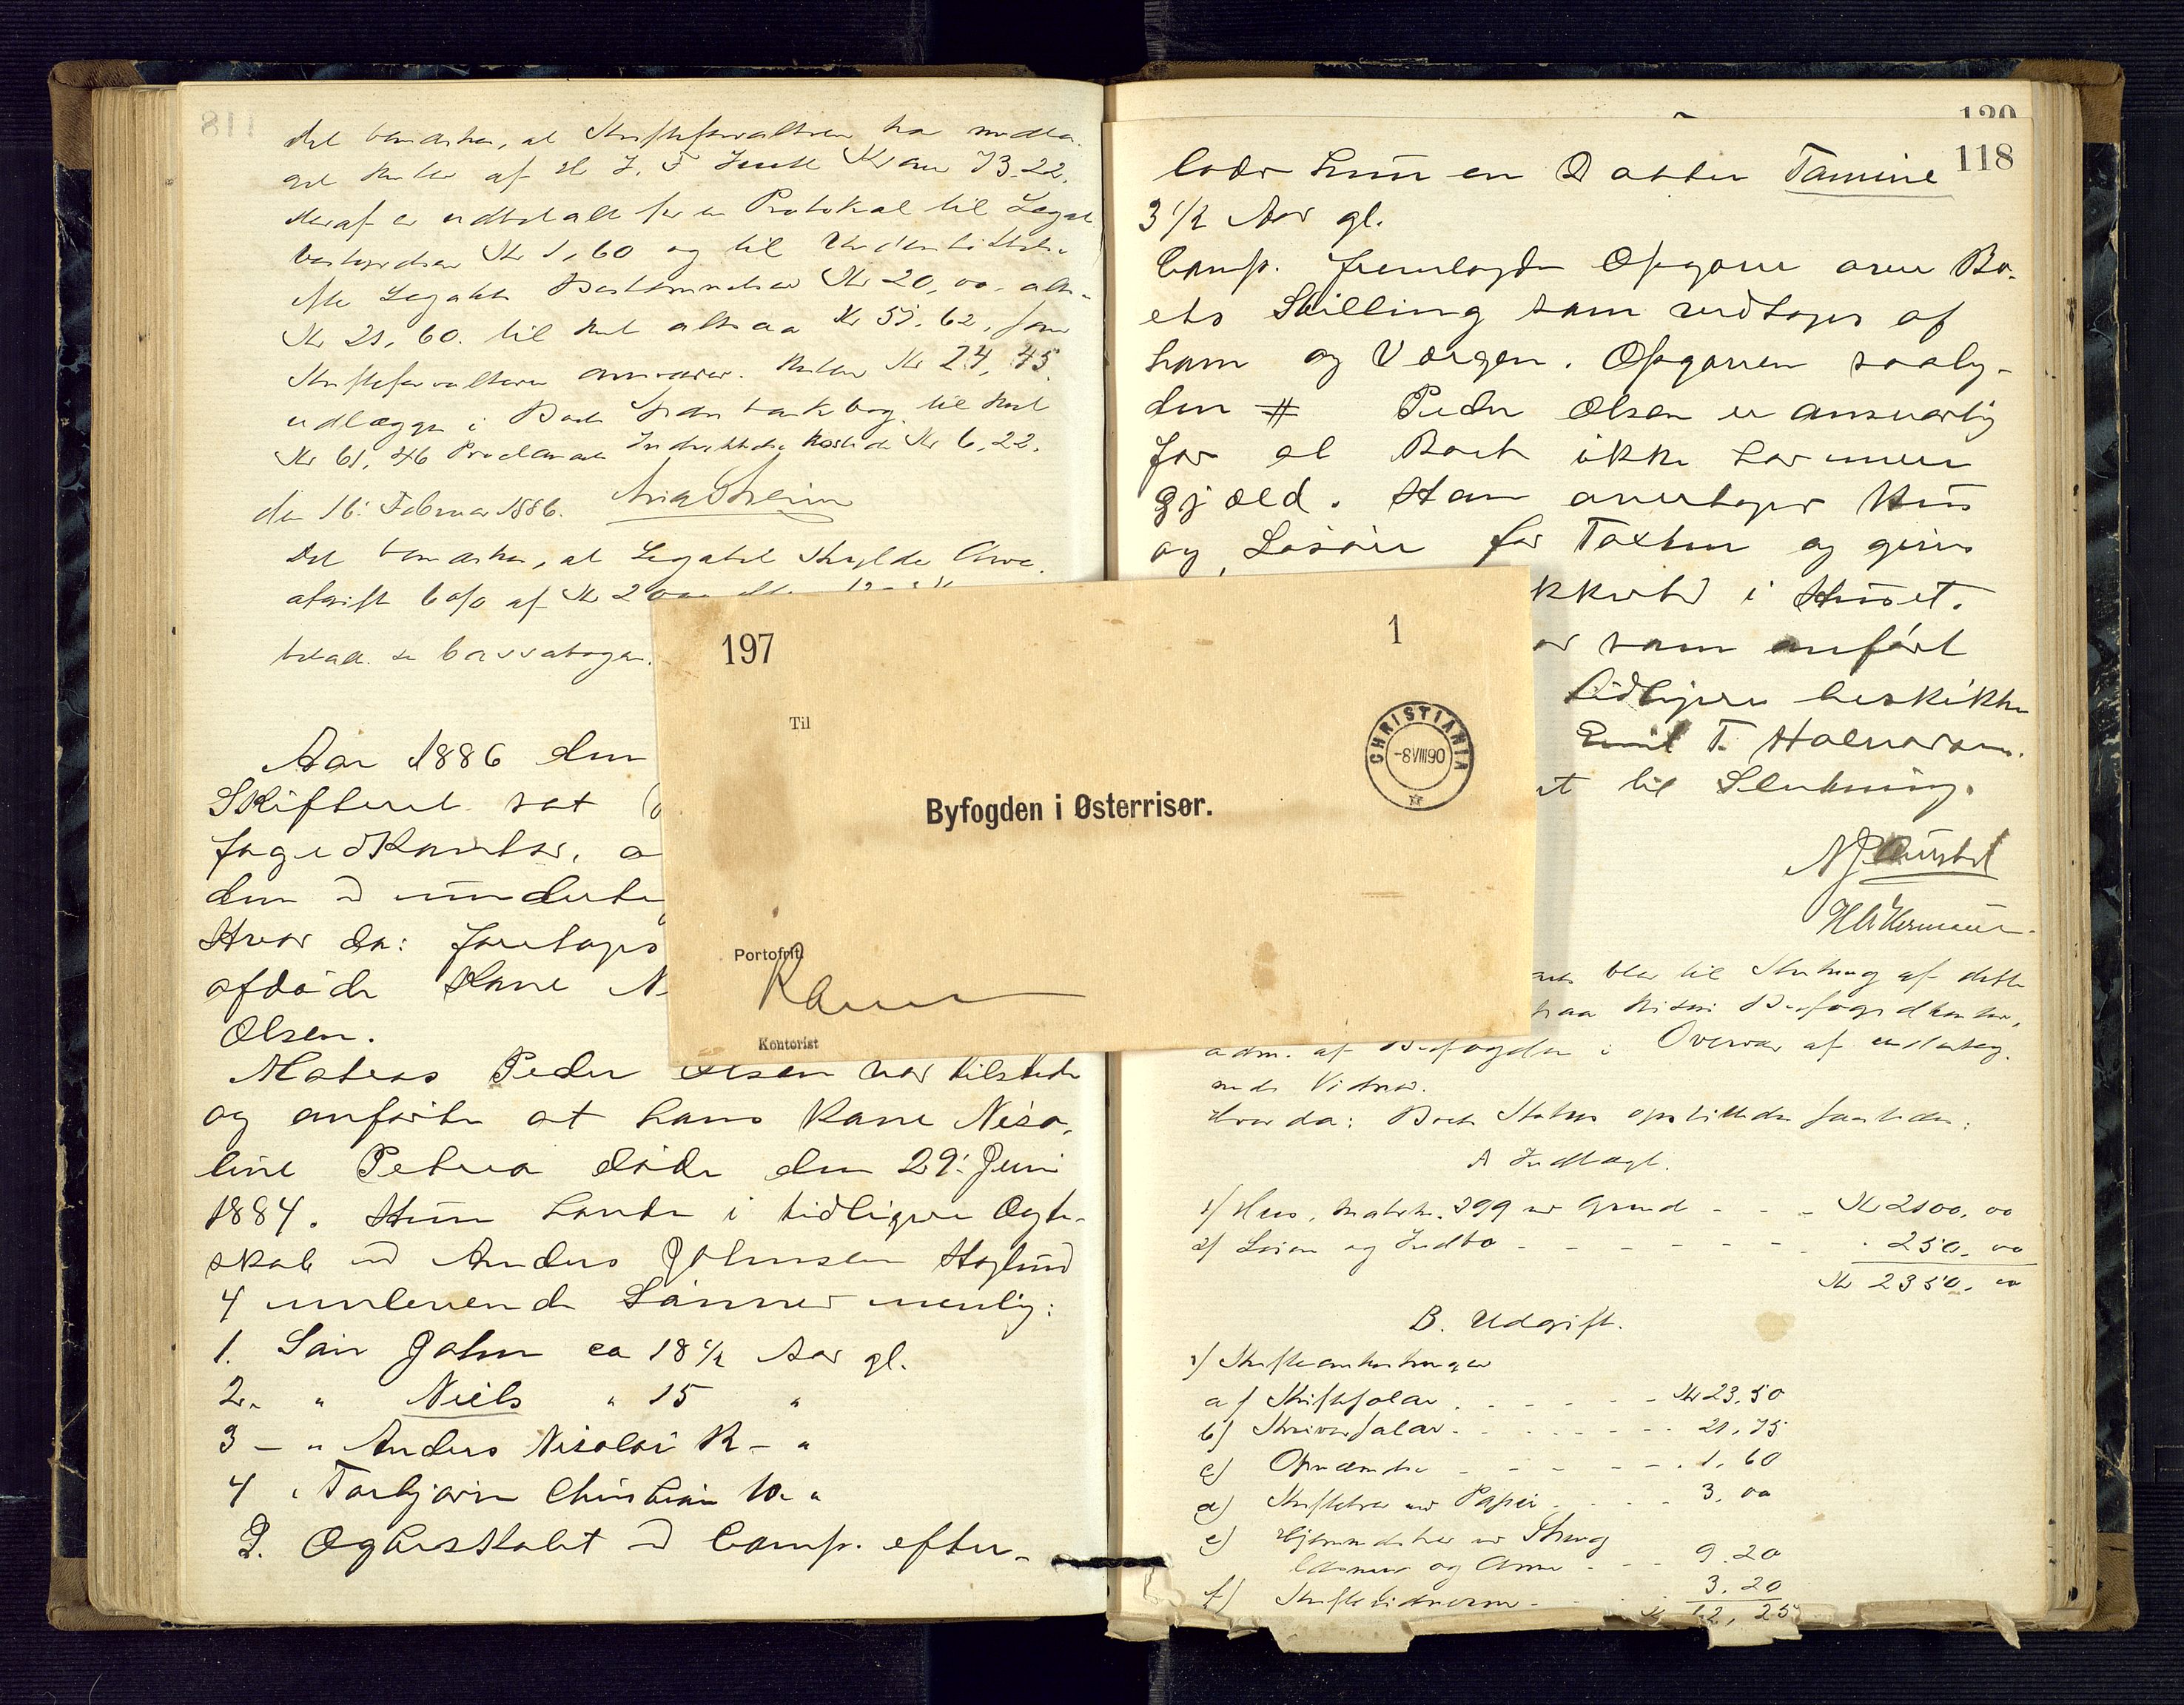 det bemærkes, at Skifteforvalteren har modta-
get Renter af H J. F Kr 73.22.
Heraf er udbetalt for en Protokol til Legat
bestyrelsen Kr 1,60 og til
efte Legatets Bestemmelse Kr 20,00. alts-
Kr 21,60. til Rest altsaa Kr 51.62, som
Skifteforvalteren ansvarer. Renter Kr 24,45
udlægges i Boets Sparebankbog til Rest
Kr 61,46 Kr 6,22.
den 16. Februar 1886.
Det bemærkes, at Legatet skylder Arve-
afgift 6 o/o af Kr 2000
betalt. se Cassabogen.
Aar 1886 den
Skifteret sat
fogedkontor, a
den d underte
Hvor da: foretoges
afdøde Kone N
Olsen.
Matros Peder Olsen var tilstede
og anførte at hans Kone Nico-
line Petrea døde den 29. Juni
1884. Hun havde i tidligere Ægte-
skab m Anders Johnsen Høglund
4 umlevende Sønner nemlig:
1. Søn John ca 18 1/2 Aar gl.
2. " Niels " 15 "
3 - " Anders Nicolai 12 - "
4 " Torbjørn Christian 10 - "
I Ægteskabet m Comp. efter-
120
118
lod hun en Datter Tamine
3 1/2 Aar gl.
Comp. fremlagde Opgave over Bo-
ets Stilling som vedtoges af
ham og Værgen. Opgaven saaly-
den # Peder Olsen er ansvarlig
for at Boet ikke har mere
Gjæld. Han overtager Hus
og Løsøre for Taxten og gives
kkert i Huset.
ar som anført
tidligere beskikke
Emil T. Halvorsen.
t til Slutning.
blev til Slutning af dette
paa Risør Byfogedkontor,
adm. af Byfogden i Overvær af underteg-
nede Vidner.
Hvor da: Boets Status opstilledes saaledes:
A Indtægt.
1/ Hus, matr. n. 399 m Grund - - - Kr 2100,00
2/ Løsøre og Indbo - - - - - - - 250,00
Kr 2350,00
B. Udgift.
1/ Skifteomkostninger
a/ Skiftesalær - - - - Kr 23,50
b/ Skriversalær - - - - 21,75
c/ - - - - 1,60
d/ m Papir - - - 3,00
e/ m
og - - - 9.20
f/ Skiftevidnerne - - 3.20
62,25
197
1
Til
CHRISTIANIA
-8VIII90
Byfogden i Østerrisør.
Portofrit.
Kontorist